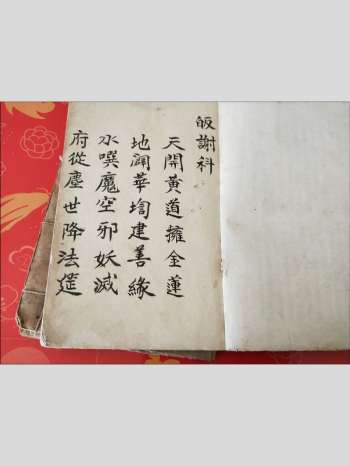 皈謝科
天開黃道擁金蓮
地濶華堦建善緣
水噀魔空邪妖滅
府從塵世降法筵